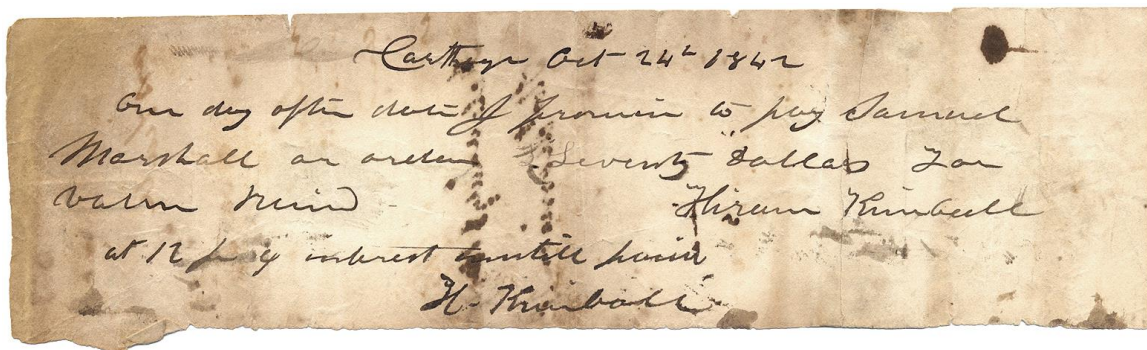 Carthage Oct 24th 1842
One day after date I promise to pay Samuel
Marshall or order $ Seventy Dollars For
value Recivd Hiram Kimball
at 12 pr ct interest untill paid
H. Kimball